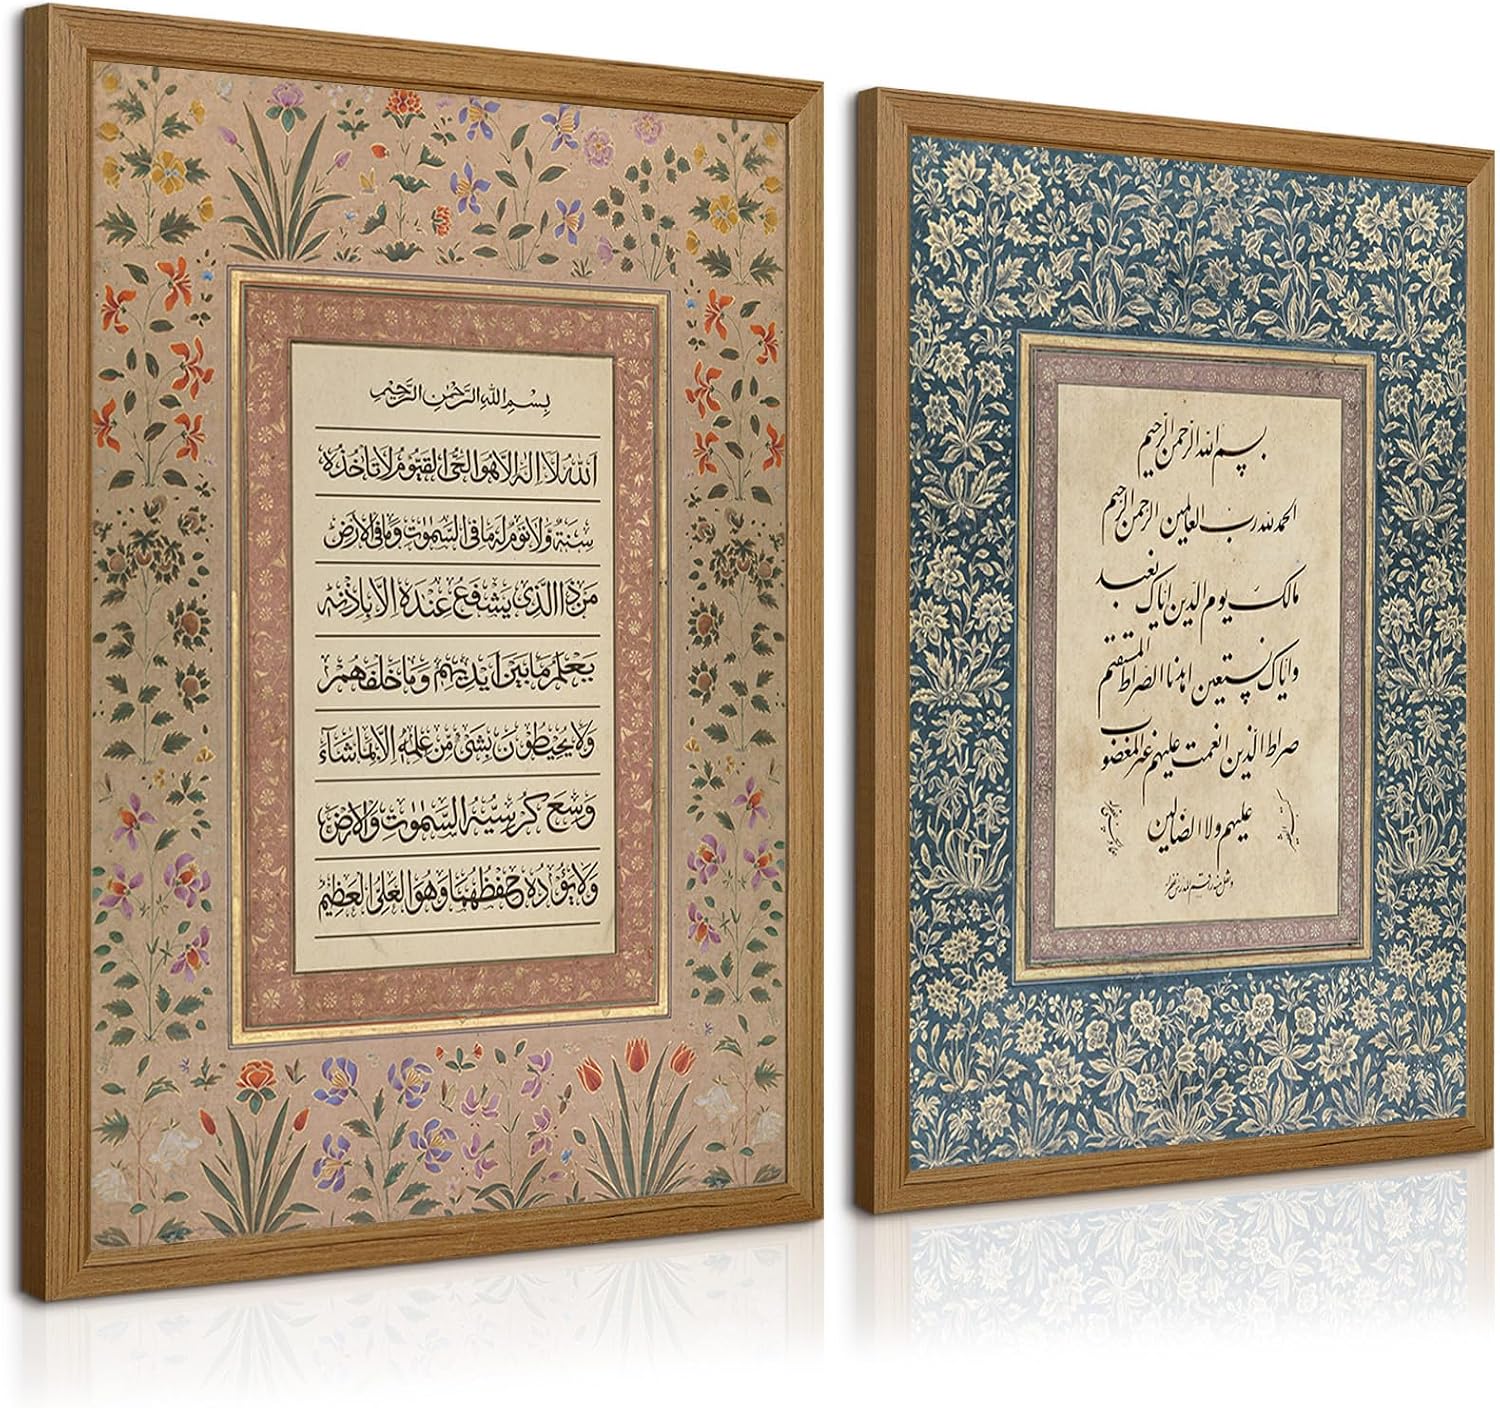 بِسْمِ اللهِ الرَّحْمٰنِ الرَّحِيْمِ
اَللهُ لَا اِلٰهَ اِلَّا هُوَ الْحَيُّ الْقَيُّوْمُ لَا تَأْخُذُهٗ
سِنَةٌ وَّلَا نَوْمٌ لَهٗ مَا فِي السَّمٰوٰتِ وَمَا فِي الْاَرْضِ
مَنْ ذَا الَّذِيْ يَشْفَعُ عِنْدَهٗ اِلَّا بِاِذْنِهٖ
يَعْلَمُ مَا بَيْنَ اَيْدِيْهِمْ وَمَا خَلْفَهُمْ
وَلَا يُحِيْطُوْنَ بِشَيْءٍ مِّنْ عِلْمِهٖ اِلَّا بِمَا شَآءَ
وَسِعَ كُرْسِيُّهُ السَّمٰوٰتِ وَالْاَرْضَ
وَلَا يَئُوْدُهٗ حِفْظُهُمَا وَهُوَ الْعَلِيُّ الْعَظِيْمُ
بسم الله الرحمن الرحيم
الحمد لله رب العالمين الرحمن الرحيم
مالك يوم الدين اياك نعبد
واياك نستعين اهدنا الصراط المستقيم
صراط الذين انعمت عليهم غير المغضوب
عليهم ولا الضالين